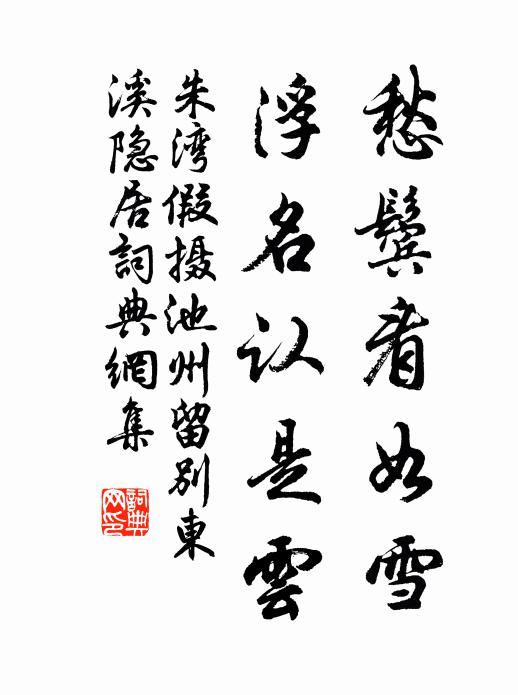 愁鬓看如雪
浮名认是雲
朱湾假摄池州留别東
溪隐居詞典網集
詞典
网印